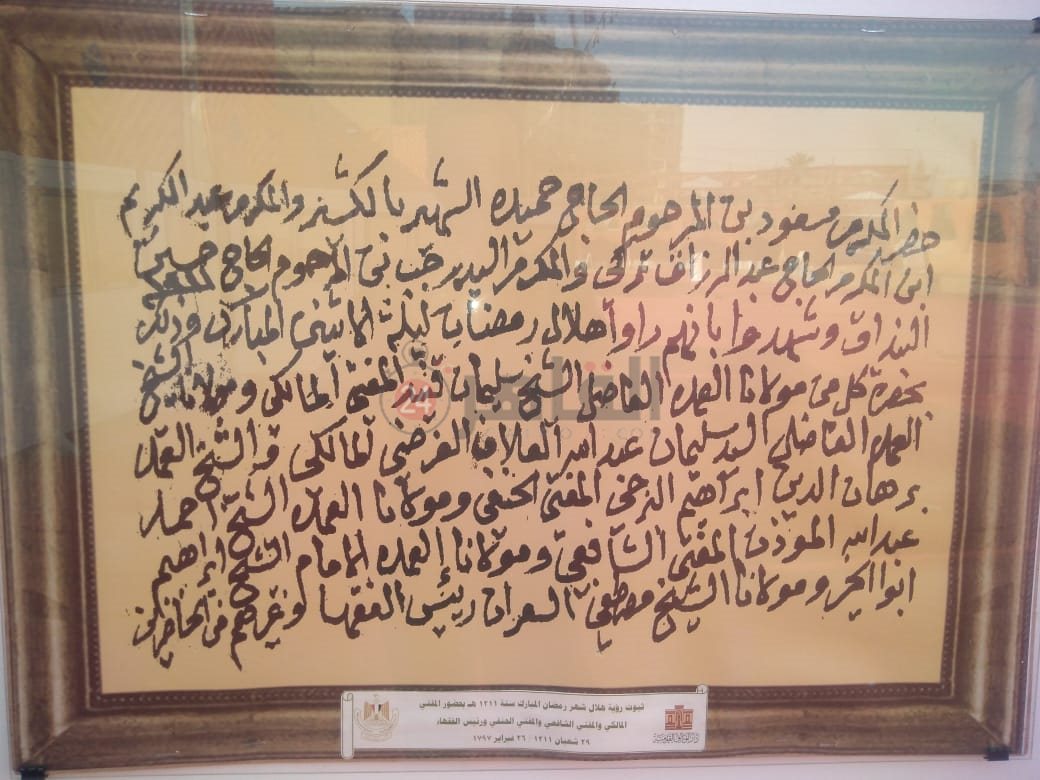 حضر المكرم مسعود بن المرحوم الحاج حميده الشهير بالكسبر والمكرم عبد الكريم
ابن المكرم الحاج عبد الرزاق تركى والمكرم السيد رجب بن المرحوم الحاج حسين
وشهدوا بانهم راوا هلال رمضان ليلة الاثنين المبارك وذلك
بحضرة كل من مولانا العمده الفاضل الشيخ سليمان المفتى المالكى ومولانا الشيخ
العمده الفاضل السيد سليمان عبد الله الفرضى المالكى الشيخ العمده
برهان الدين ابراهيم المفتى الحنفى ومولانا العمده الشيخ احمد
عبد الله الموذن المفتى الشافعى ومولانا العمده الامام الشيخ ابراهيم
ابو الخير ومولانا الشيخ مصطفى ريس الفقها وغيرهم من الحاضرين
القاهرة 24
ثبوت رؤية هلال شهر رمضان المبارك سنة ١٢١١ هـ بحضور المفتي
المالكي والمفتي الشافعي والمفتي الحنفي ورئيس الفقهاء
٢٩ شعبان ١٢١١ / ٢٦ فبراير ١٧٩٧
دار الوثائق القومية